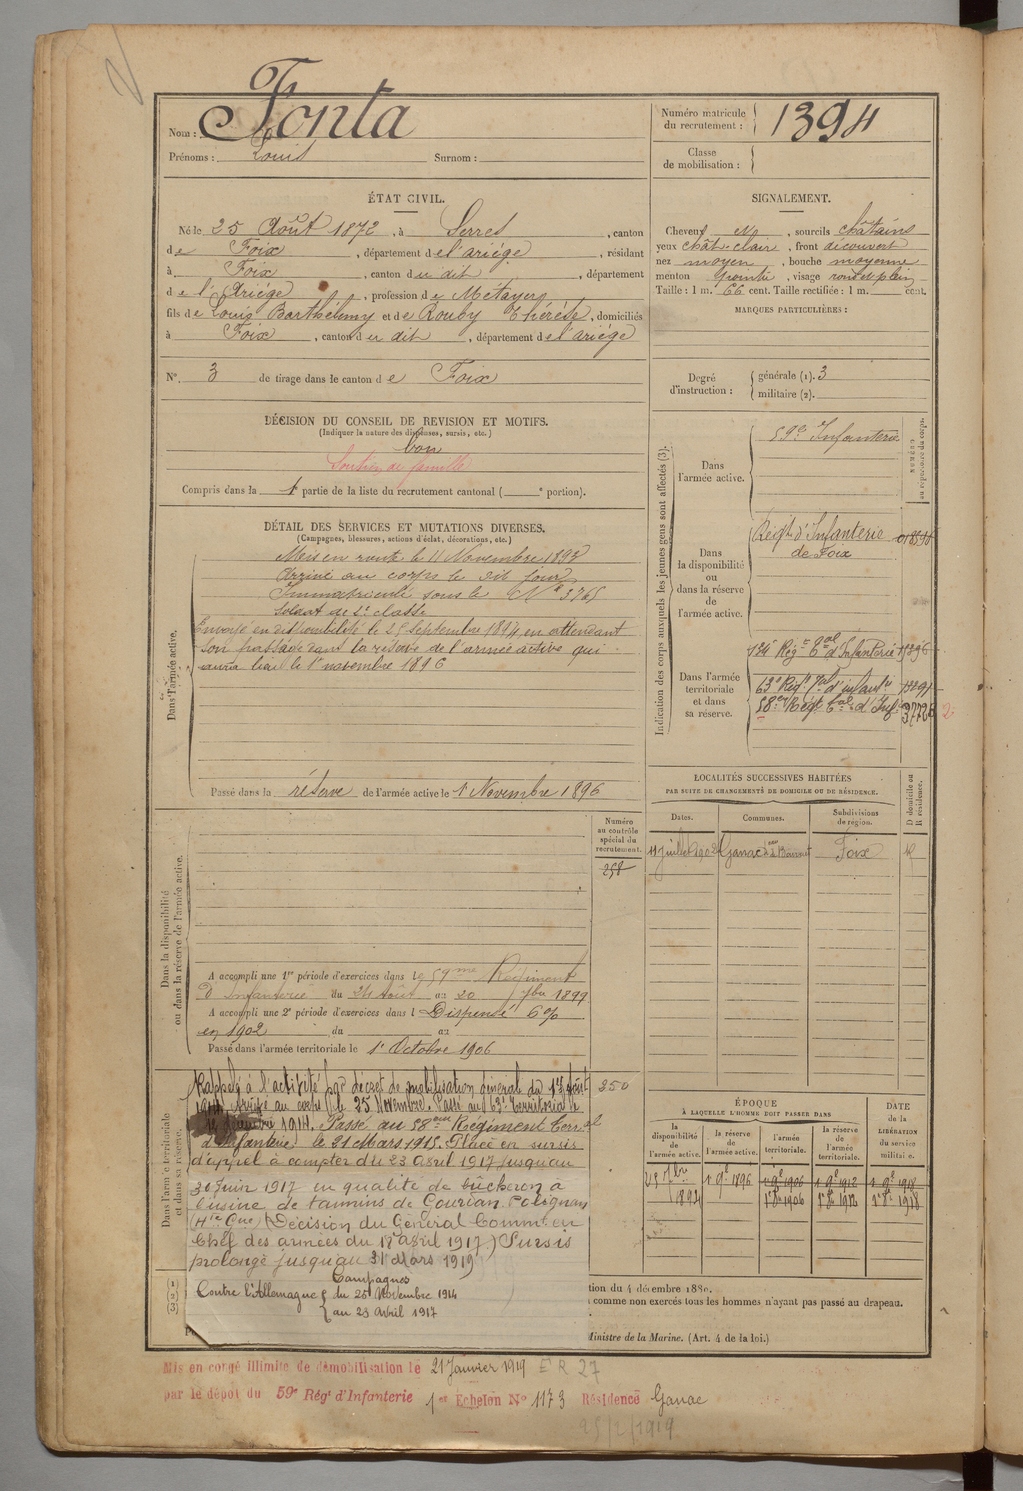 Nom : Fonta
Prénoms : Louis Surnom :
Numéro matricule du recrutement : 1394
Classe de mobilisation :
ÉTAT CIVIL.
Né le 25 Août 1872, à Serres, canton
de Foix, département de l'ariége, résidant
à Foix, canton du dit, département
de l'Ariége, profession de Métayer
fils de Louis Barthélemy et de Rouby Thérèse, domiciliés
à Foix, canton du dit, département de l'ariége
N° 3 de tirage dans le canton de Foix
SIGNALEMENT.
Cheveux No, sourcils châtains
yeux chât-clair, front découvert
nez moyen, bouche moyenne
menton pointu, visage rond et plein
Taille : 1 m. 66 cent. Taille rectifiée : 1 m. cent.
MARQUES PARTICULIÈRES :
Degré d'instruction : générale (1). 3
militaire (2).
DÉCISION DU CONSEIL DE REVISION ET MOTIFS.
(Indiquer la nature des dispenses, sursis, etc.)
bon
Soutien de famille
Compris dans la 1e partie de la liste du recrutement cantonal ( e portion).
DÉTAIL DES SERVICES ET MUTATIONS DIVERSES.
(Campagnes, blessures, actions d'éclat, décorations, etc.)
Dans l'armée active.
Mis en route le 11 Novembre 1893
Arrivé au corps le dit jour
Immatriculé sous le N° 3765
Soldat de 2e classe
Envoyé en disponibilité le 25 Septembre 1894 en attendant
son passage dans la réserve de l'armée active qui
aura lieu le 1er novembre 1896
Passé dans la réserve de l'armée active le 1 Novembre 1896
Indication des corps auxquels les jeunes gens sont affectés (3).
NUMÉRO au répertoire du corps.
Dans l'armée active.
59e Infanterie
Dans la disponibilité ou dans la réserve de l'armée active.
Régt d'Infanterie
de Foix
Dans l'armée territoriale et dans sa réserve.
134e Régt Tal d'Infanterie
63e Régt Tal d'Infantie
58e Régt Tal d'Inf
LOCALITÉS SUCCESSIVES HABITÉES
PAR SUITE DE CHANGEMENTS DE DOMICILE OU DE RÉSIDENCE.
Dates. Communes. Subdivisions de région. D domicile ou R résidence.
11 juillet 1902 Ganac Foix R
Numéro au contrôle spécial du recrutement.
258
Dans la disponibilité ou dans la réserve de l'armée active.
A accompli une 1re période d'exercices dans le 59me Régiment
d'Infanterie du 24 Août au 20 7bre 1899
A accompli une 2e période d'exercices dans l Dispensé 6%
en 1902 du au
Passé dans l'armée territoriale le 1er Octobre 1906
Dans l'armée territoriale et dans sa réserve.
350
Rappelé à l'activité par décret de mobilisation général du 1er Août
1914 arrivé au corps le 25 Novembre. Passé au 63e Territorial le
décembre 1914. Passé au 58eme Régiment Terral
d'Infanterie le 21 Mars 1915. Placé en sursis
d'appel à compter du 23 Avril 1917 jusquau
30 Juin 1917 en qualité de bûcheron à
l'usine de tannins de Gourdan Polignan
(Hte Gne) (Décision du Général Commt en
Chef des armées du 18 avril 1917) Sursis
prolongé jusquau 31 Mars 1919
Campagnes
Contre l'Allemagne du 25 Novembre 1914
au 23 Avril 1917
ÉPOQUE
À LAQUELLE L'HOMME DOIT PASSER DANS
la disponibilité de l'armée active. la réserve de l'armée active. l'armée territoriale. la réserve de l'armée territoriale.
DATE de la LIBÉRATION du service militaire.
25 7bre 1894 1 9e 1896 1 9e 1906 1 9e 1912 1 9e 1918
1er 8e 1906 1er 8e 1912 1er 8e 1918
(1)
(2)
(3)
tion du 4 décembre 1880.
comme non exercés tous les hommes n'ayant pas passé au drapeau.
Ministre de la Marine. (Art. 4 de la loi.)
Mis en congé illimité de démobilisation le 21 Janvier 1919 E R 27
par le dépôt du 59e Régt d'Infanterie 1er Echelon N° 1173 Résidence Ganac
25/2/1919